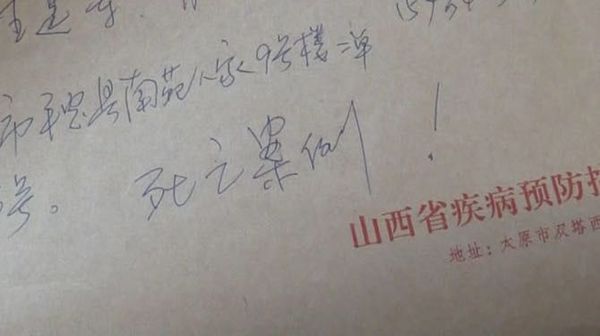 市平定县南苑人家9号楼二单
号。 死亡案例！
山西省疾病预防控
地址：太原市双塔西